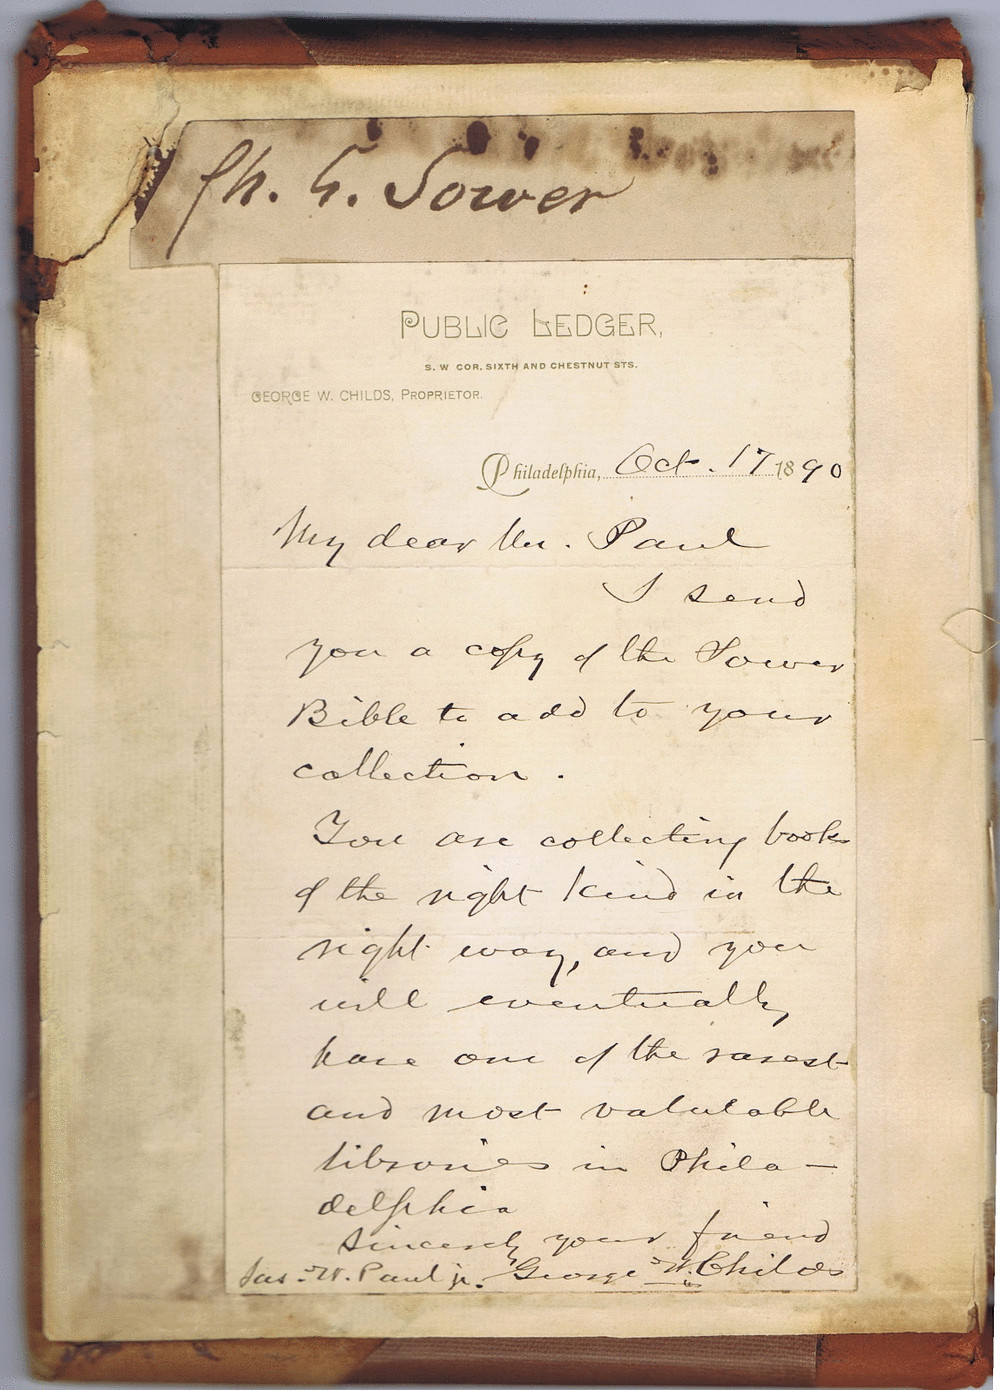 Ch. G. Sower
PUBLIC LEDGER,
S. W COR. SIXTH AND CHESTNUT STS.
GEORGE W. CHILDS, PROPRIETOR.
Philadelphia, Oct. 17 1890
My dear Mr. Paul
I send
you a copy of the Sower
Bible to add to your
collection.
You are collecting books
of the right kind in the
right way, and you
will eventually
have one of the rarest
and most valulable
libraries in Phila-
delphia
Sincerely your friend
Jas. W. Paul jr. George W. Childs